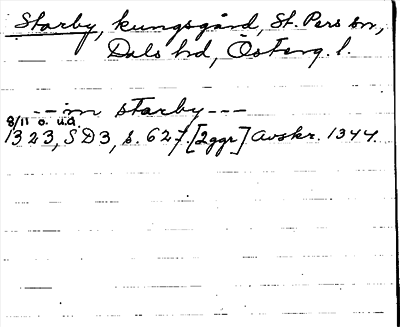 Starby, kungsgård, St. Pers sn,
Dals hd, Österg. l.
--- in starby ---
8/11 o. u.d.
1323, SD3, s. 627. [2ggr] Avskr. 1344.